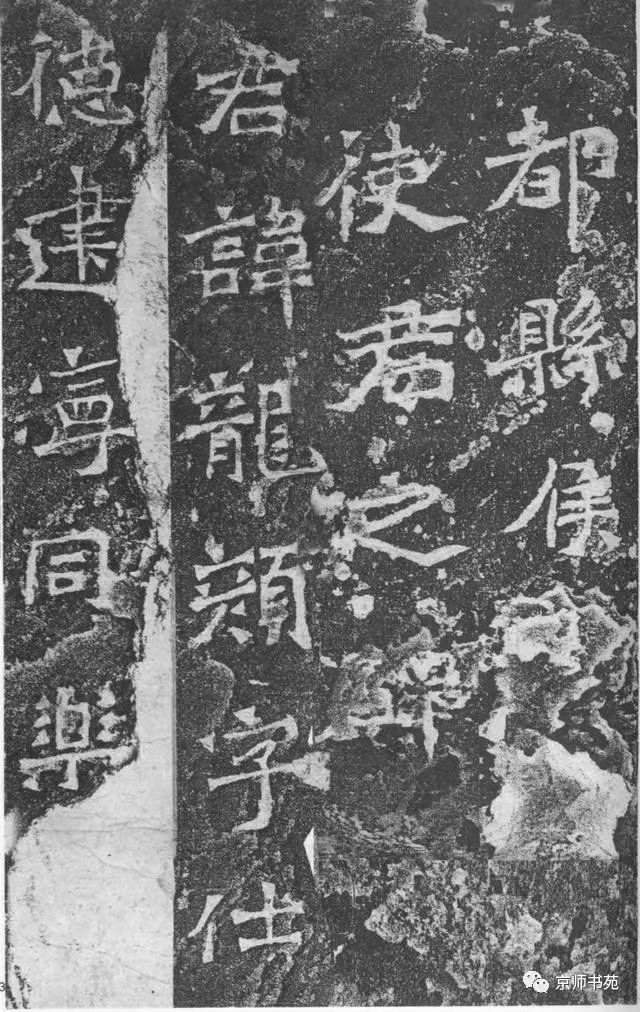 都縣侯
使君之碑
君諱龍顏字仕
德建寧同樂
3
京师书苑